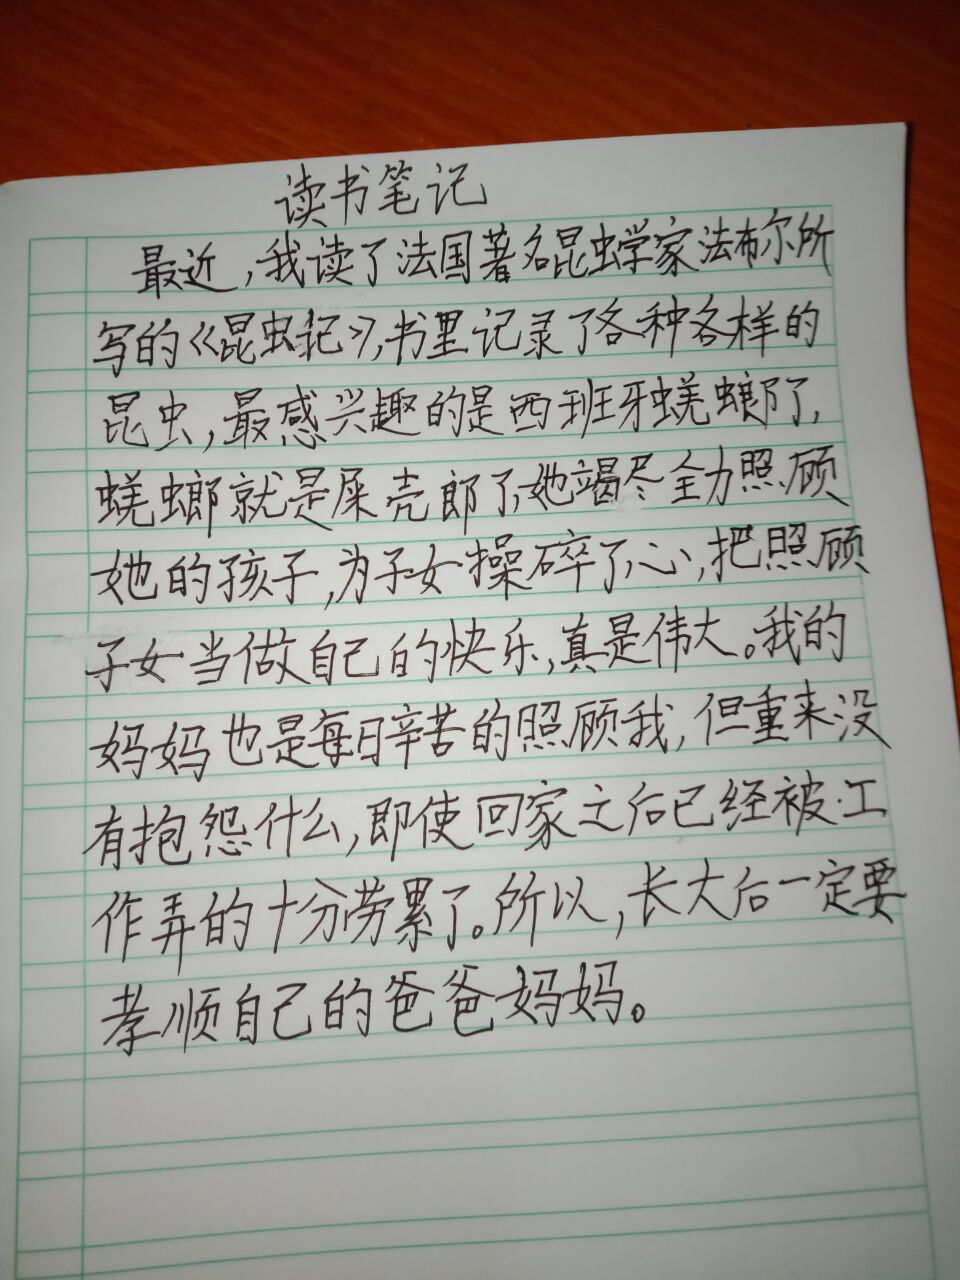 读书笔记
最近，我读了法国著名昆虫学家法布尔所
写的《昆虫记》，书里记录了各种各样的
昆虫，最感兴趣的是西班牙蜣螂了，
蜣螂就是屎壳郎了，她竭尽全力照顾
她的孩子，为子女操碎了心，把照顾
子女当做自己的快乐，真是伟大。我的
妈妈也是每日辛苦的照顾我，但重来没
有抱怨什么，即使回家之后已经被工
作弄的十分劳累了。所以，长大后一定要
孝顺自己的爸爸妈妈。